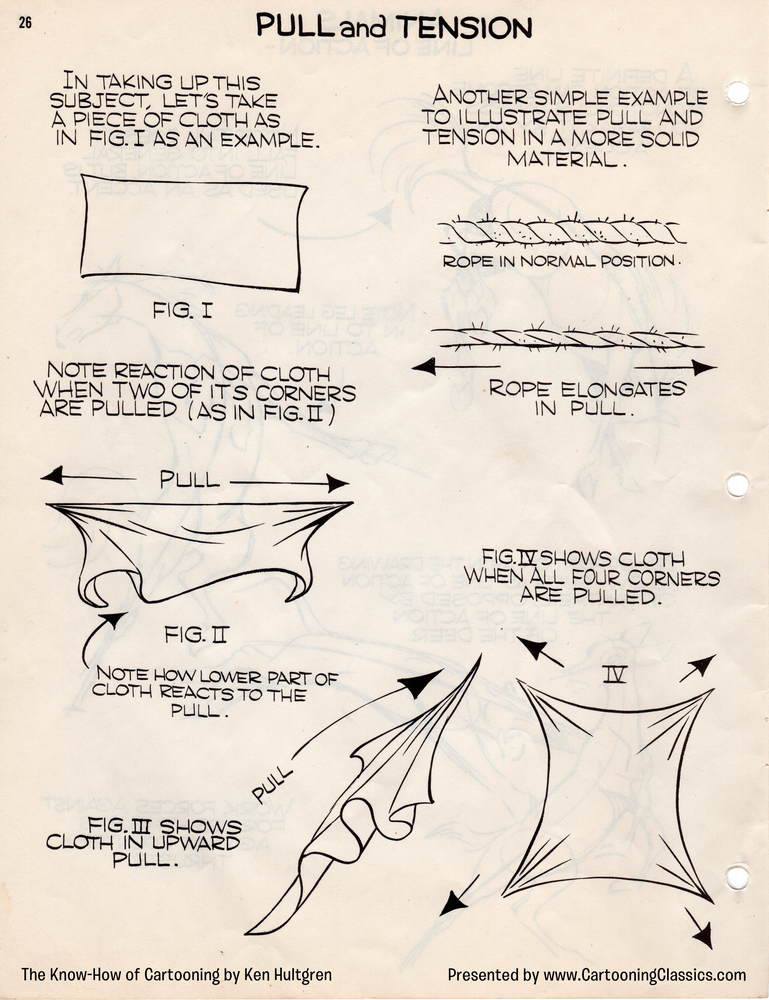 26
PULL and TENSION
IN TAKING UP THIS
SUBJECT, LET'S TAKE
A PIECE OF CLOTH AS
IN FIG. I AS AN EXAMPLE.
FIG. I
NOTE REACTION OF CLOTH
WHEN TWO OF ITS CORNERS
ARE PULLED (AS IN FIG. II)
PULL
FIG. II
NOTE HOW LOWER PART OF
CLOTH REACTS TO THE
PULL.
ANOTHER SIMPLE EXAMPLE
TO ILLUSTRATE PULL AND
TENSION IN A MORE SOLID
MATERIAL.
ROPE IN NORMAL POSITION.
ROPE ELONGATES
IN PULL.
FIG. IV SHOWS CLOTH
WHEN ALL FOUR CORNERS
ARE PULLED.
IV
PULL
FIG. III SHOWS
CLOTH IN UPWARD
PULL.
The Know-How of Cartooning by Ken Hultgren
Presented by www.CartooningClassics.com